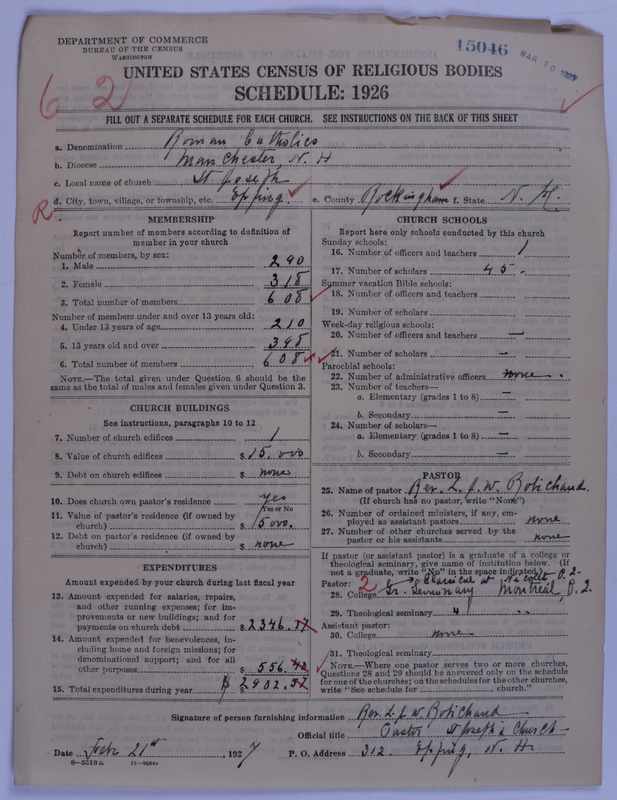 DEPARTMENT OF COMMERCE
BUREAU OF THE CENSUS
WASHINGTON
15046
MAR 10 1927
UNITED STATES CENSUS OF RELIGIOUS BODIES
SCHEDULE: 1926
62
FILL OUT A SEPARATE SCHEDULE FOR EACH CHURCH. SEE INSTRUCTIONS ON THE BACK OF THIS SHEET
a. Denomination Roman Catholics
b. Diocese Manchester, N. H
c. Local name of church St Joseph
d. City, town, village, or township, etc. Epping. e. County Rockingham f. State N. H.
R
MEMBERSHIP
Report number of members according to definition of
member in your church
Number of members, by sex:
1. Male 290
2. Female 318
3. Total number of members 608
Number of members under and over 13 years old:
4. Under 13 years of age 210
5. 13 years old and over 398
6. Total number of members 608
NOTE.—The total given under Question 6 should be the
same as the total of males and females given under Question 3.
CHURCH BUILDINGS
See instructions, paragraphs 10 to 12
7. Number of church edifices 1
8. Value of church edifices $ 15.000
9. Debt on church edifices $ none
10. Does church own pastor's residence yes
Yes or No
11. Value of pastor's residence (if owned by
church) $ 5000.
12. Debt on pastor's residence (if owned by
church) $ none
EXPENDITURES
Amount expended by your church during last fiscal year
13. Amount expended for salaries, repairs,
and other running expenses; for im-
provements or new buildings; and for
payments on church debt $ 2346.17
14. Amount expended for benevolences, in-
cluding home and foreign missions; for
denominational support; and for all
other purposes $ 556.40
15. Total expenditures during year $ 2902.57
CHURCH SCHOOLS
Report here only schools conducted by this church
Sunday schools:
16. Number of officers and teachers 1
17. Number of scholars 45 -
Summer vacation Bible schools:
18. Number of officers and teachers
19. Number of scholars
Week-day religious schools:
20. Number of officers and teachers —
21. Number of scholars —
Parochial schools:
22. Number of administrative officers none .
23. Number of teachers—
a. Elementary (grades 1 to 8) —
b. Secondary —
24. Number of scholars—
a. Elementary (grades 1 to 8) —
b. Secondary —
PASTOR
25. Name of pastor Rev. L. J. W. Robichaud.
(If church has no pastor, write "None")
26. Number of ordained ministers, if any, em-
ployed as assistant pastors none
27. Number of other churches served by the
pastor or his assistants none
If pastor (or assistant pastor) is a graduate of a college or
theological seminary, give name of institution below. (If
not a graduate, write "No" in the space indicated.)
Pastor: 2 Classical at
28. College Gr. Seminary Montreal, P. 2.
29. Theological seminary " "
Assistant pastor:
30. College none
31. Theological seminary
NOTE.—Where one pastor serves two or more churches,
Questions 28 and 29 should be answered only on the schedule
for one of the churches; on the schedules for the other churches,
write "See schedule for church."
Signature of person furnishing information Rev L. J. W. Robichaud
Official title Pastor St Joseph's Church
Date Feb. 21st, 1927 P. O. Address 312. Epping, N. H.
8-5518a 11-9056